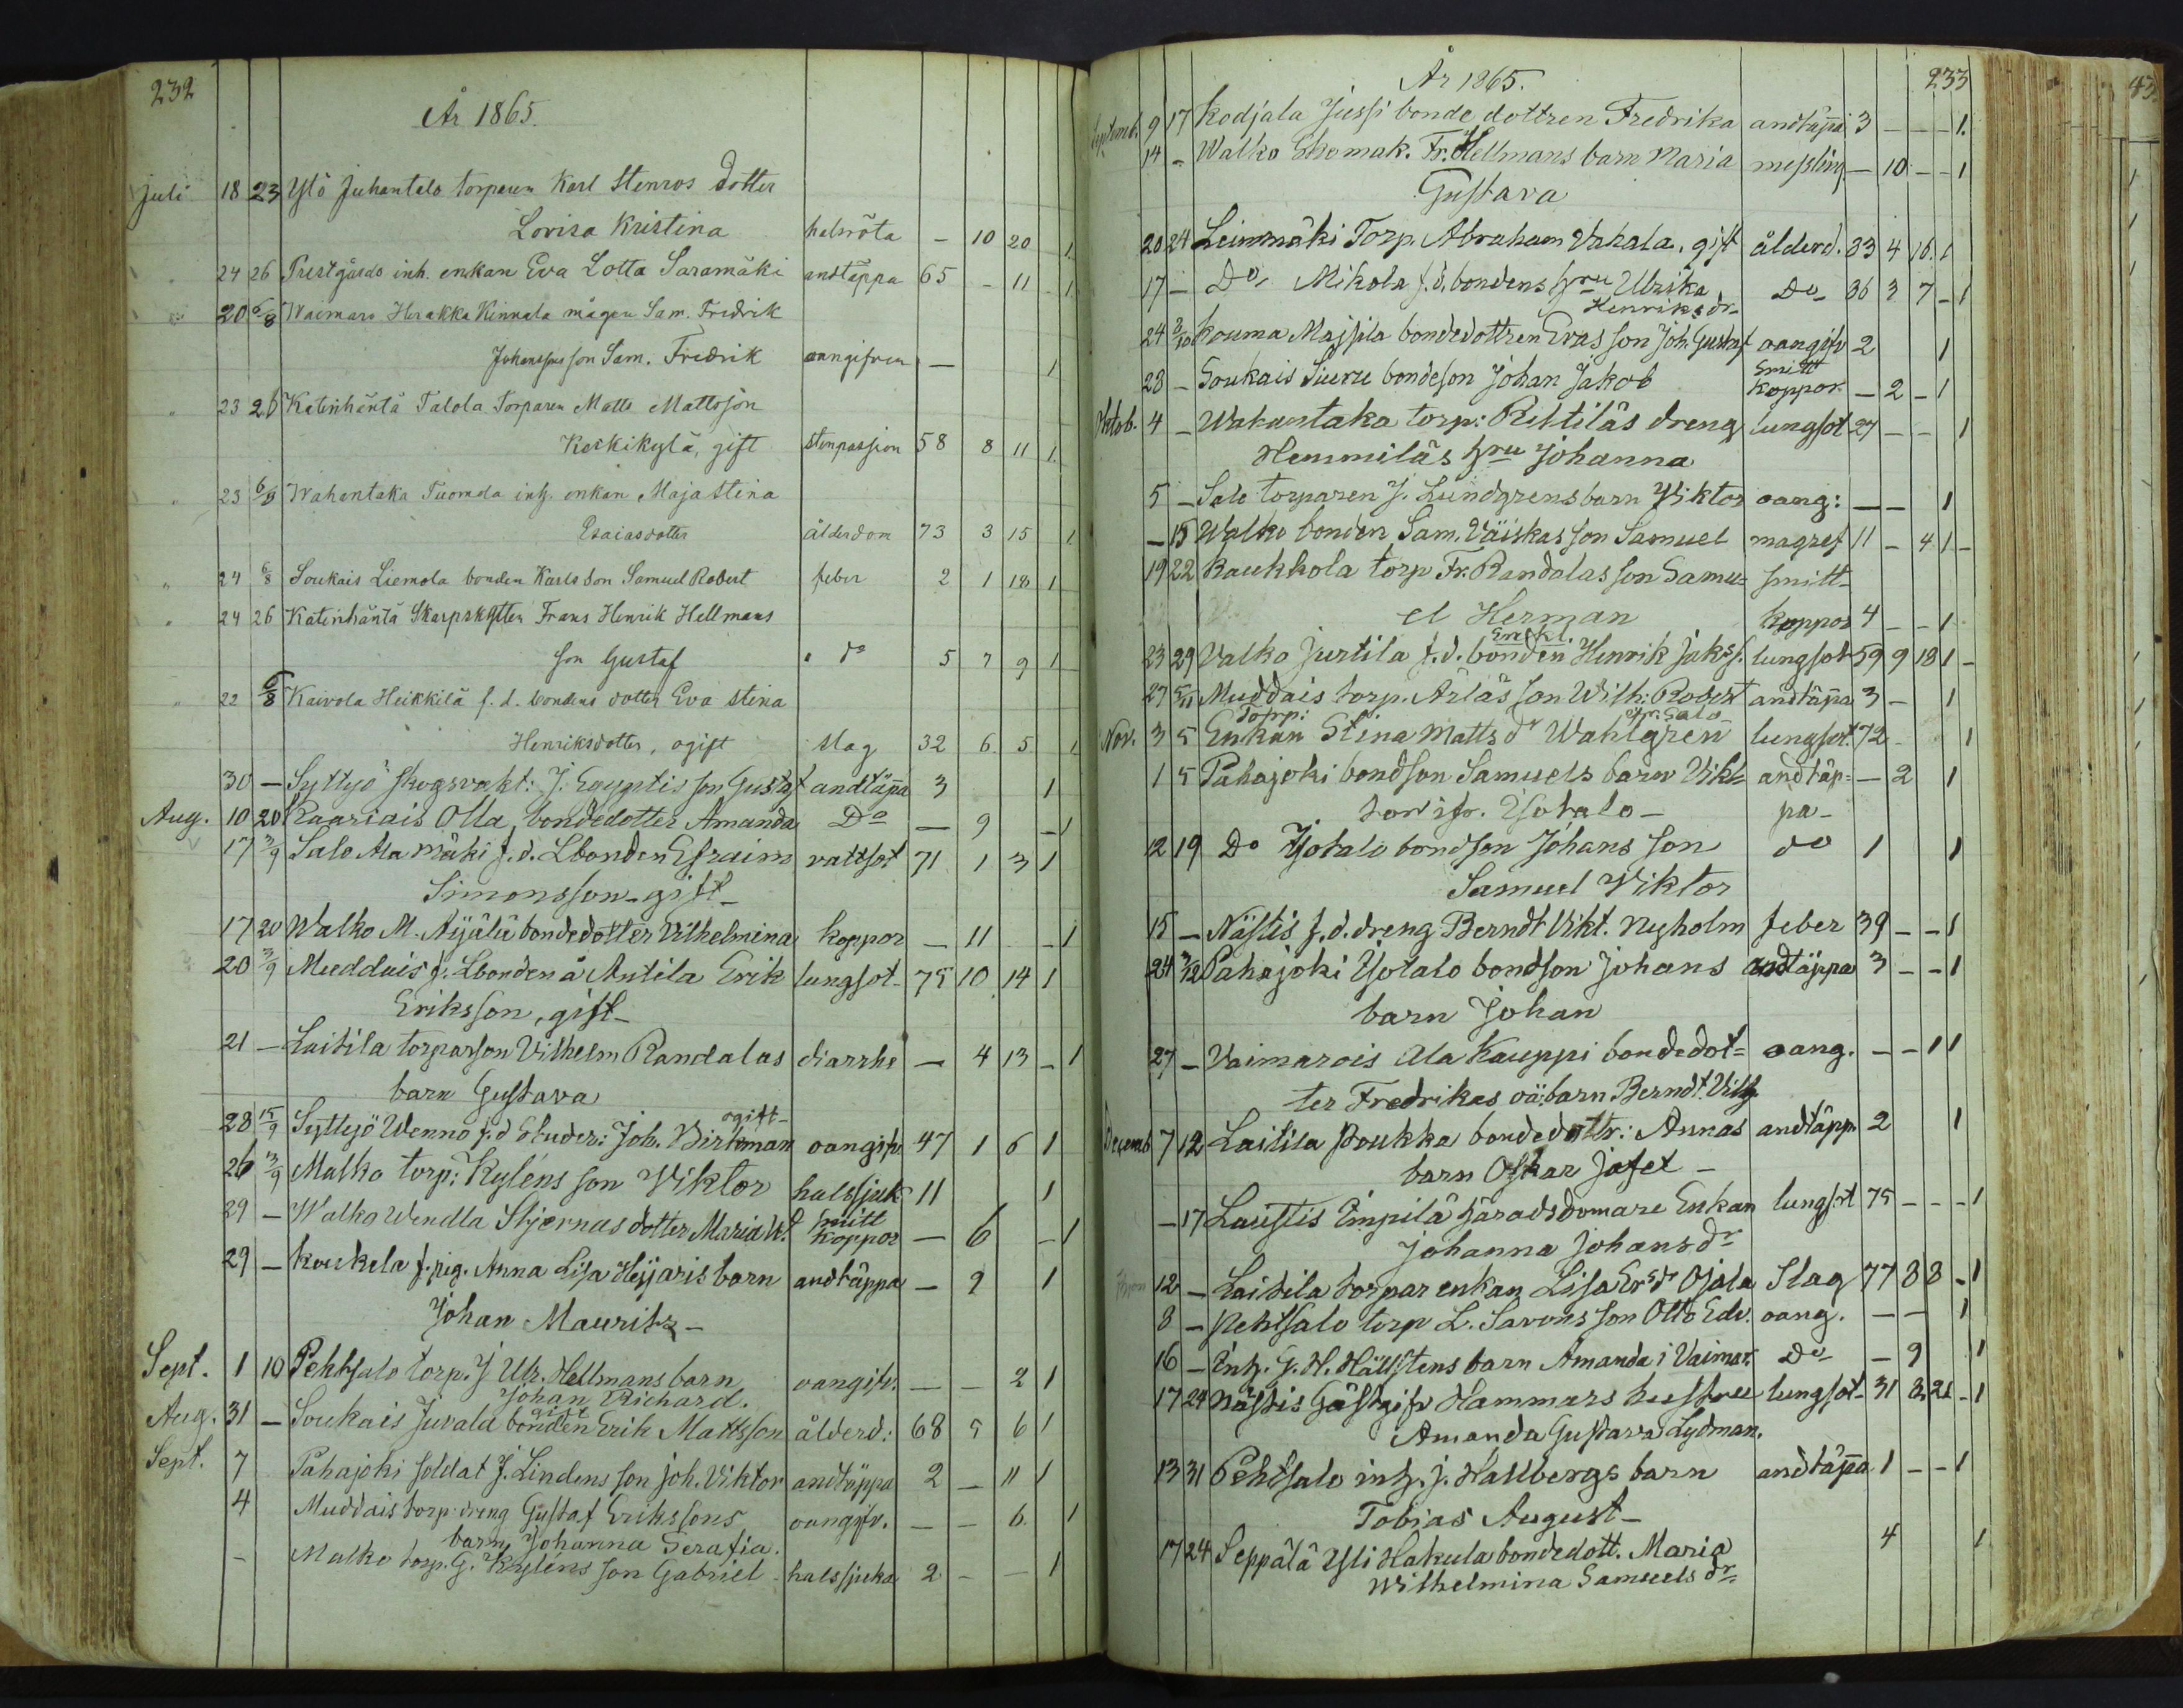 232
År 1865.
Juli 18 23 Ylö Juhantalo torparen Karl Stenros dotter
Lovisa Kristina halsröta - 10 20 1
" 24 26 Prestgårds inh. enkan Eva Lotta Saramäki andtäppa 65 - 11 - 1
" 20 6/8 Waimaro Herakka Kinnala mågen Sam. Fredrik
Johanssons son Sam. Fredrik oangifven - 1
" 23 26 Katinhäntä Talola Torparen Matts Mattsson
Keskikylä, gift stenpassion 58 8 11 1.
" 23 6/8 Wahantaka Tuomola inh. enkan Maja Stina
Esaiasdotter ålderdom 73 3 15 1
" 24 6/8 Soukais Liemola bonden Karls son Samuel Robert feber 2 1 18 1
" 24 26 Katinhäntä Skarpskytten Frans Henrik Hellmans
son Gustaf " do 5 7 9 1
" 22 6/8 Kaivola Heikkilä f. d. bondens dotter Eva Stina
Henriksdotter, ogift slag 32 6 5 1
30 - Syttyjö skogsvakt: J. Egyptis son Gustaf andtäppa 3 1
Aug. 10 20 Raariais Olla, bondedotter Amanda Do - 9 - 1
17 3/9 Salo Ala Mäki f. d. Lbonden Efraim vattsot 71 1 3 1
Simonsson - gift -
17 20 Walko M. Äijälä bondedotter Vilhelmina koppor - 11 - 1
20 3/9 Muddais f. Lbonden å Antila Erik lungsot - 75 10 14 1
Eriksson, gift -
21 - Laitila torparson Vilhelm Randalas diarrhe - 4 13 - 1
barn Gustava
ogift -
28 15/9 Syttyjö Wenno f. d Studer: Joh. Birkman oangifv. 47 1 6 1
26 3/9 Malko torp: Kyléns son Viktor halssjuk 11 1
29 - Walko Wendla Stjernas dotter Maria W. smitt koppor - 6 - 1
29 - Koukela f. pig. Anna Lisa Heijaris barn andtäppa - 9 1
Johan Mauritz -
Sept. 1 10 Pehtsalo torp. J Ulr. Hellmans barn oangifv. - - 2 1
Johan Richard.
gift
Aug. 31 - Soukais Juvala bonden Erik Mattsson ålderd: 68 9 6 1
Sept. 7 Pahajoki soldat J. Lindens son Joh. Viktor andtäppa 2 - 11 1
4 Muddais torp. dreng Gustaf Erikssons oangifv. - - 6. 1
barn Johanna Serafia.
- Malko torp. G. Kyléns son Gabriel - halssjuka 2 - - 1
233
År 1865.
Septemb. 9 17 Kodjala Jussi bonde dottren Fredrika andtäppa 3 - - - 1.
14 - Walko Skomak. Fr. Hellmans barn Maria messling - 10 - - 1
Gustava
20 24 Leinmäki Torp. Abraham Vakala, gift ålderd. 83 4 16. 1
17 - Do Mikola f. d. bondens hru Ulrika Do 86 3 7 - 1
Henriksdr
24 8/10 Kouma Maisila bondedottren Evas son Joh. Gustaf oangifv 2 1
23 - Soukais Sieru bondeson Johan Jakob Smitt koppor. - 2 - 1
Oktob. 4 - Wahantaka torp: Rihtiläs dreng lungsot 27 - - 1
Hemmiläs hru Johanna
5 - Salo torparen J. Lundgrens barn Viktor oang: - - 1
- 15 Walko bonden Sam. Väiskas son Samuel magref 11 - 4 1 -
19 22 Raukkola torp Fr. Randalas son Samu= smitt-
el Herman koppor 4 - - 1
Enkl.
23 29 Valko Juttila f. d. bonden Henrik Jakss. lungsot 59 9 18 1 -
27 5/11 Muddais torp. Ärläs son Wilh: Robert andtäppa 3 - 1
torp: fr. Salo
Nov. 3 5 Enkan Stina Mattsdr Wahlgren lungsot. 72 1
1 5 Pahajoki bondson Samuels barn Vikt= andtäp= - 2 1
tor ifr. Ylotalo - pa -
12 19 Do Yotalo bondson Johans son do 1 1
Samuel Viktor
15 - Nästis f. d. dreng Berndt Vikt. Nyholm feber 39 - - 1
24 3/12 Pahajoki Yotalo bondson Johans andtäppa 3 - - 1
barn Johan
27 - Vaimarois Ala Kauppi bondedot= oang. - - 11
ter Fredrikas oä. barn Berndt Vilh.
Decemb 7 12 Laitila Poukka bondedottr: Annas andtäpp. 2 1
barn Oskar Jafet -
- 17 Laustis Empilä häradsdomare Enkan lungsot 75 - - - 1
Johanna Johansdr
12 - Laitila torpar enkan Lisa Ersdr Ojala Slag 77 8 8 - 1
8 - Pehtsalo torp L. Savons son Otto Edv. oang. - - 1
16 - Inh. G. H. Hällstens barn Amanda i Vaimar. Do - 9 1
17 24 Nästis Gästgifv Hammars hustru lungsot - 31 8 21 - 1
Amanda Gustava Lydman.
13 31 Pehtsalo inh. J. Hallbergs barn andtäppa 1 - - 1
Tobias August -
17 24 Seppälä Yli Hakula bondedott. Maria 4 1
Wilhelmina Samuelsdr
43.